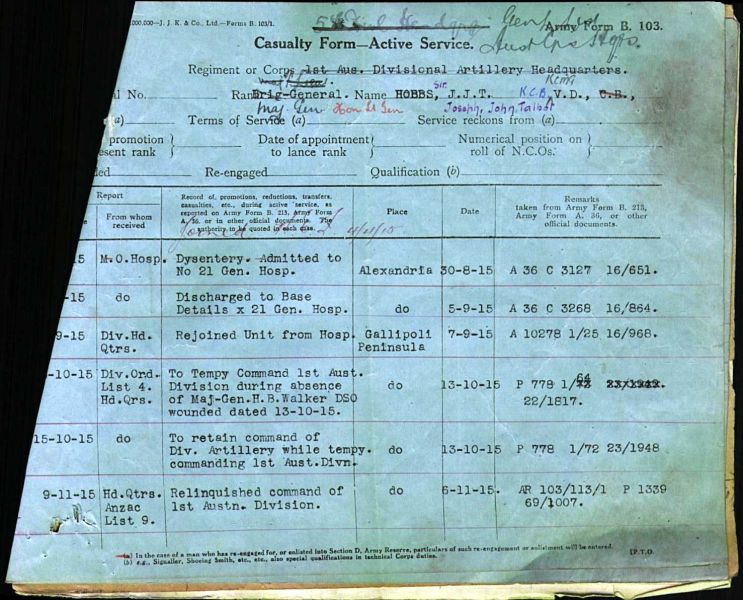 000,000—J. J. K. & Co., Ltd.—Forms B. 103/1.
Army Form B. 103.
Casualty Form—Active Service.
Regiment or Corps 1st Aus. Divisional Artillery Headquarters.
K.C.M.G
al No. Rank Brig-General. Name HOBBS, Sir J.J.T. K.C.B, V.D., C.B.,
Maj Gen Hon Lt Gen Joseph, John, Talbot
(a) Terms of Service (a) Service reckons from (a)
promotion Date of appointment Numerical position on
esent rank to lance rank roll of N.C.Os.
ed Re-engaged Qualification (b)
Report
From whom received
Record of promotions, reductions, transfers, casualties, etc., during active service, as reported on Army Form B. 213, Army Form A. 36, or in other official documents. The authority to be quoted in each case.
Place
Date
Remarks
taken from Army Form B. 213, Army Form A. 36, or other official documents.
Joined 4/11/15
15 M.O.Hosp. Dysentery. Admitted to
No 21 Gen. Hosp. Alexandria 30-8-15 A 36 C 3127 16/651.
-15 do Discharged to Base
Details x 21 Gen. Hosp. do 5-9-15 A 36 C 3268 16/864.
9-15 Div.Hd. Rejoined Unit from Hosp. Gallipoli 7-9-15 A 10278 1/25 16/968.
Qtrs. Peninsula
-10-15 Div.Ord. To Tempy Command 1st Aust.
List 4. Division during absence do 13-10-15 P 778 1/64 23/1949.
Hd.Qrs. of Maj-Gen.H.B.Walker DSO 22/1817.
wounded dated 13-10-15.
15-10-15 do To retain command of
Div. Artillery while tempy. do 13-10-15 P 778 1/72 23/1948
commanding 1st Aust.Divn.
9-11-15 Hd.Qtrs. Relinquished command of do 6-11-15. AR 103/113/1 P 1339
Anzac 1st Austn. Division. 69/1007.
List 9.
(a) In the case of a man who has re-engaged for, or enlisted into Section D, Army Reserve, particulars of such re-engagement or enlistment will be entered.
(b) e.g., Signaller, Shoeing Smith, etc., etc., also special qualifications in technical Corps duties. [P.T.O.